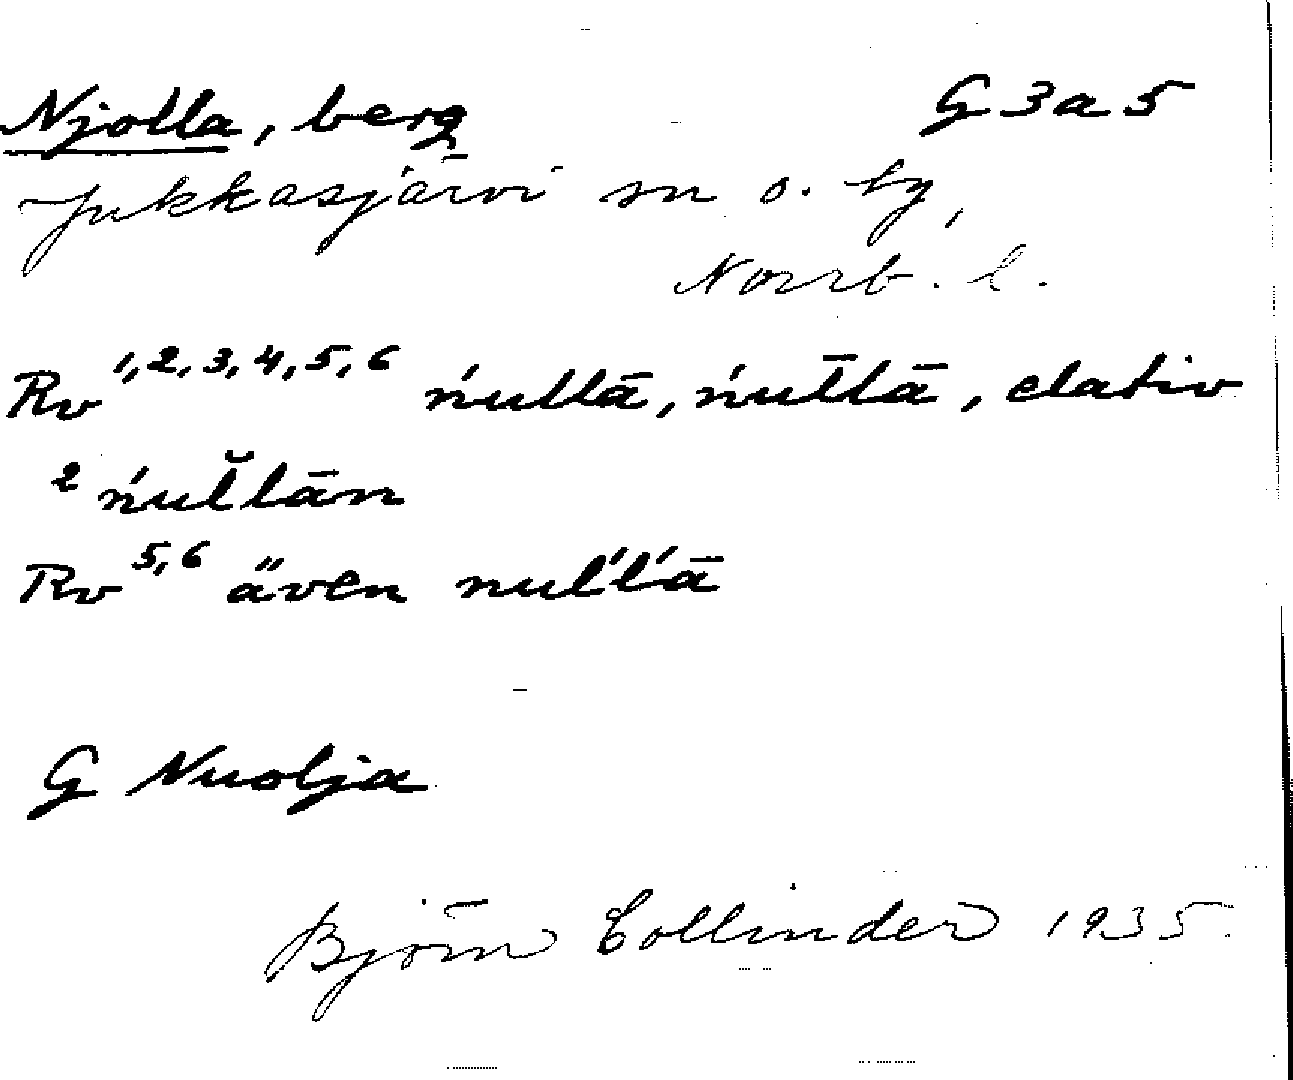 Njolla, berg G3a5
Jukkasjärvi sn o. by,
Norrb. l.
Rv 1,2,3,4,5,6 ńullā, ńul̄lā, elativ
2 ńul̆lān
Rv 5,6 även nuĺĺā
G Nuolja
Björn Collinder 1935.